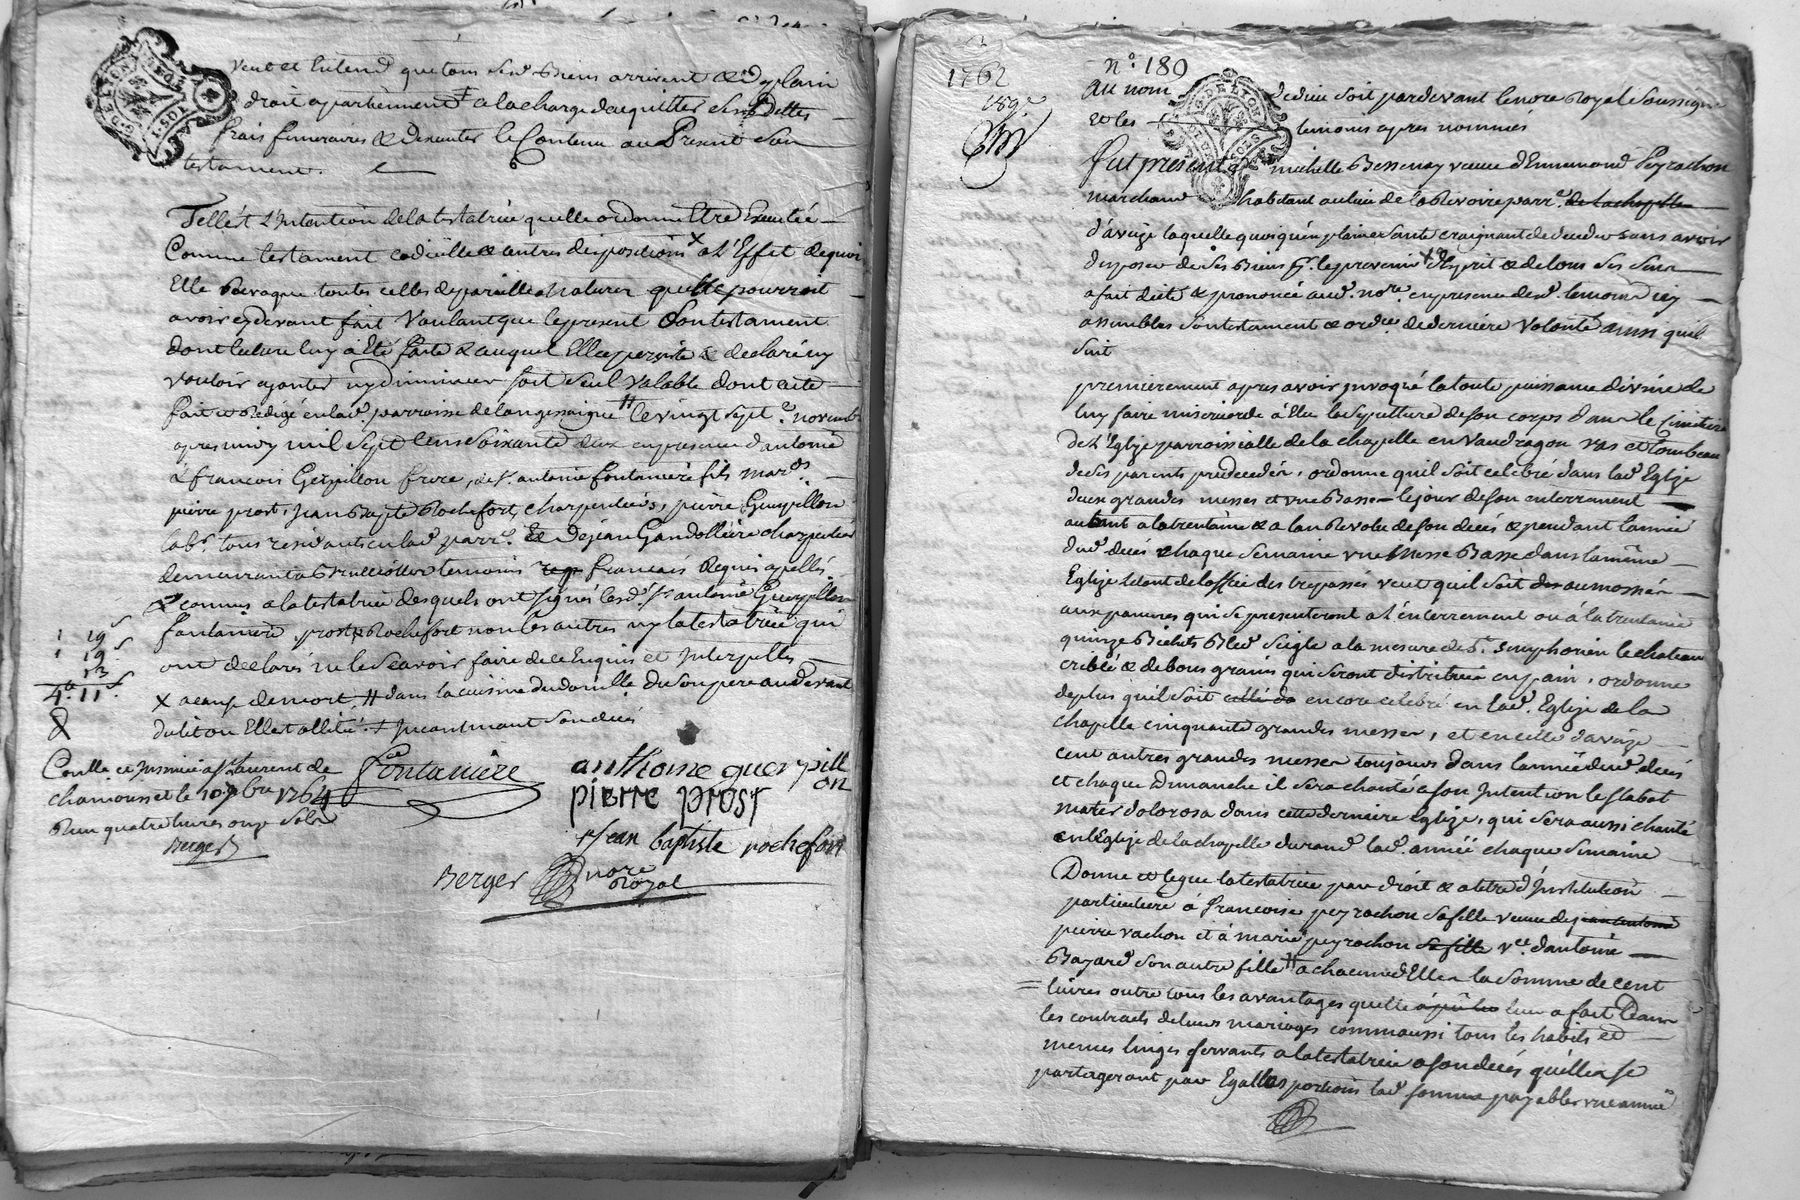 veut et Entend que tous ses d. Biens arrivent & de plain
droit apartiennent ‡ a la charge d'acquitter ses Dettes
frais funeraires & d'executer le Contenu au Present Son
testament.
Telle est L'Intention de la testatrice qu'elle ordonne Etre Executée
Comme testament codicille & autres dispositions x a L'Effet de quoi
Elle Revoque toutes celles de pareille Nature qu'elle pourroit
avoir cydevant fait Voulant que le present Son testament
dont lecture luy a Eté faite & auquel Elle persiste & declare ny
vouloir ajouter ny diminuer soit seul valable dont acte
fait et Redigé en lad. parroisse de Langessaigne # le vingt sept e. novemb.
apres midy mil sept Cens Soixante deux en presence d'antoine
& francois Guerpillon frere, de Sr. antoine fontaniere fils mar ds.
pierre prost, jean Bapte Rochefort, charpentiers, pierre Guerpillon
lab r. tous residants en lad. parr e. Et de jean Gandolliere charpentier
demeurant a Brullioles temoins francais Requis apellés
& connus a la testatrice desquels ont signés lesd. Sr. antoine Guerpillon
fontaniere, prost & Rochefort non les autres ny la testatrice qui
ont declarés ne le scavoir faire de ce Enquis et Interpellés
x a cause de mort # dans la cuisine du domicille du Son pere au devant
du lit ou Elle est allitée. ‡ Incontinant Son decès
1 19 s
1 19.
13
4 # 11 s.
Conlle ce Insinué a St. Laurent de
chamousset le 10 xbre 1764
Reçu quatre livres onze sols
Berger
fontaniere
anthoine guerpill
on
pierre prost
jean baptiste rochefort
Berger nore
Royal
1762
189 e
n°. 189
Au nom de dieu soit pardevant le nore Royal Soussigné
et les temoins apres nommés
Fut presente michelle Bessenay veuve d'Ennemond Peyrachon
marchand habitant au lieu de la Rivoire parr e. de la chapelle
d'avaize laquelle quoique en plaine sante craignant de deceder sans avoir
disposer de ses Biens Sr. le prevenir x d'Esprit & de tous ses sens
a fait dicté & prononcé aud. nore. en presence desd. temoins icy
assemblés son testament & ordre de derniere Volonté ainsi quil
suit
premierement apres avoir invoqué la toute puissance divine de
luy faire misericorde a Elu la sepulture de son corps dans le Cimetiere
de L'Eglise parroissialle de la chapelle en Vaudragon vas et tombeau
de ses parents predecedés, ordonne qu'il soit celebré dans lad. Eglise
deux grandes messes et une Basse le jour de son enterrement
autant a la trentaine & a lan Revolu de son decès & pendant l'année
dud. decès chaque semaine une Messe Basse dans la même
Eglise étant de loffice des trepassés veut qu'il soit des aumosner
aux pauvres qui se presenteront a l'enterrement ou a la trentaine
quinze Bichets Bled seigle a la mesure de St. simphorien le chateau
criblé & de bons grains qui seront distribués en pain, ordonne
de plus qu'il soit encore célébré en lad. Eglise de la
chapelle cinquante grandes messes, et en celle d'avaize
cent autres grandes messes toujours dans l'année dud. decès
et chaque Dimanche il sera chanté a son Intention le Stabat
mater dolorosa dans cette derniere Eglise, qui sera aussi chanté
en lEglise de la chapelle durand lad. année chaque Semaine
Donne et legue la testatrice par droit & a titre d'Institution
particuliere a francoise peyrachon sa fille veuve de jean antoine
pierre vachon et a marie peyrachon sa fille v ve. dantoine
Bazard son autre fille # a chacune d'Elles la Somme de cent
livres outre tous les avantages quelle leur a fait Dans
les contracts de leurs mariages comm'aussi tous les habits et
menus linges servants a la testatrice a son decés qu'elles se
partageront par Egalles portions lad. somme payables une année